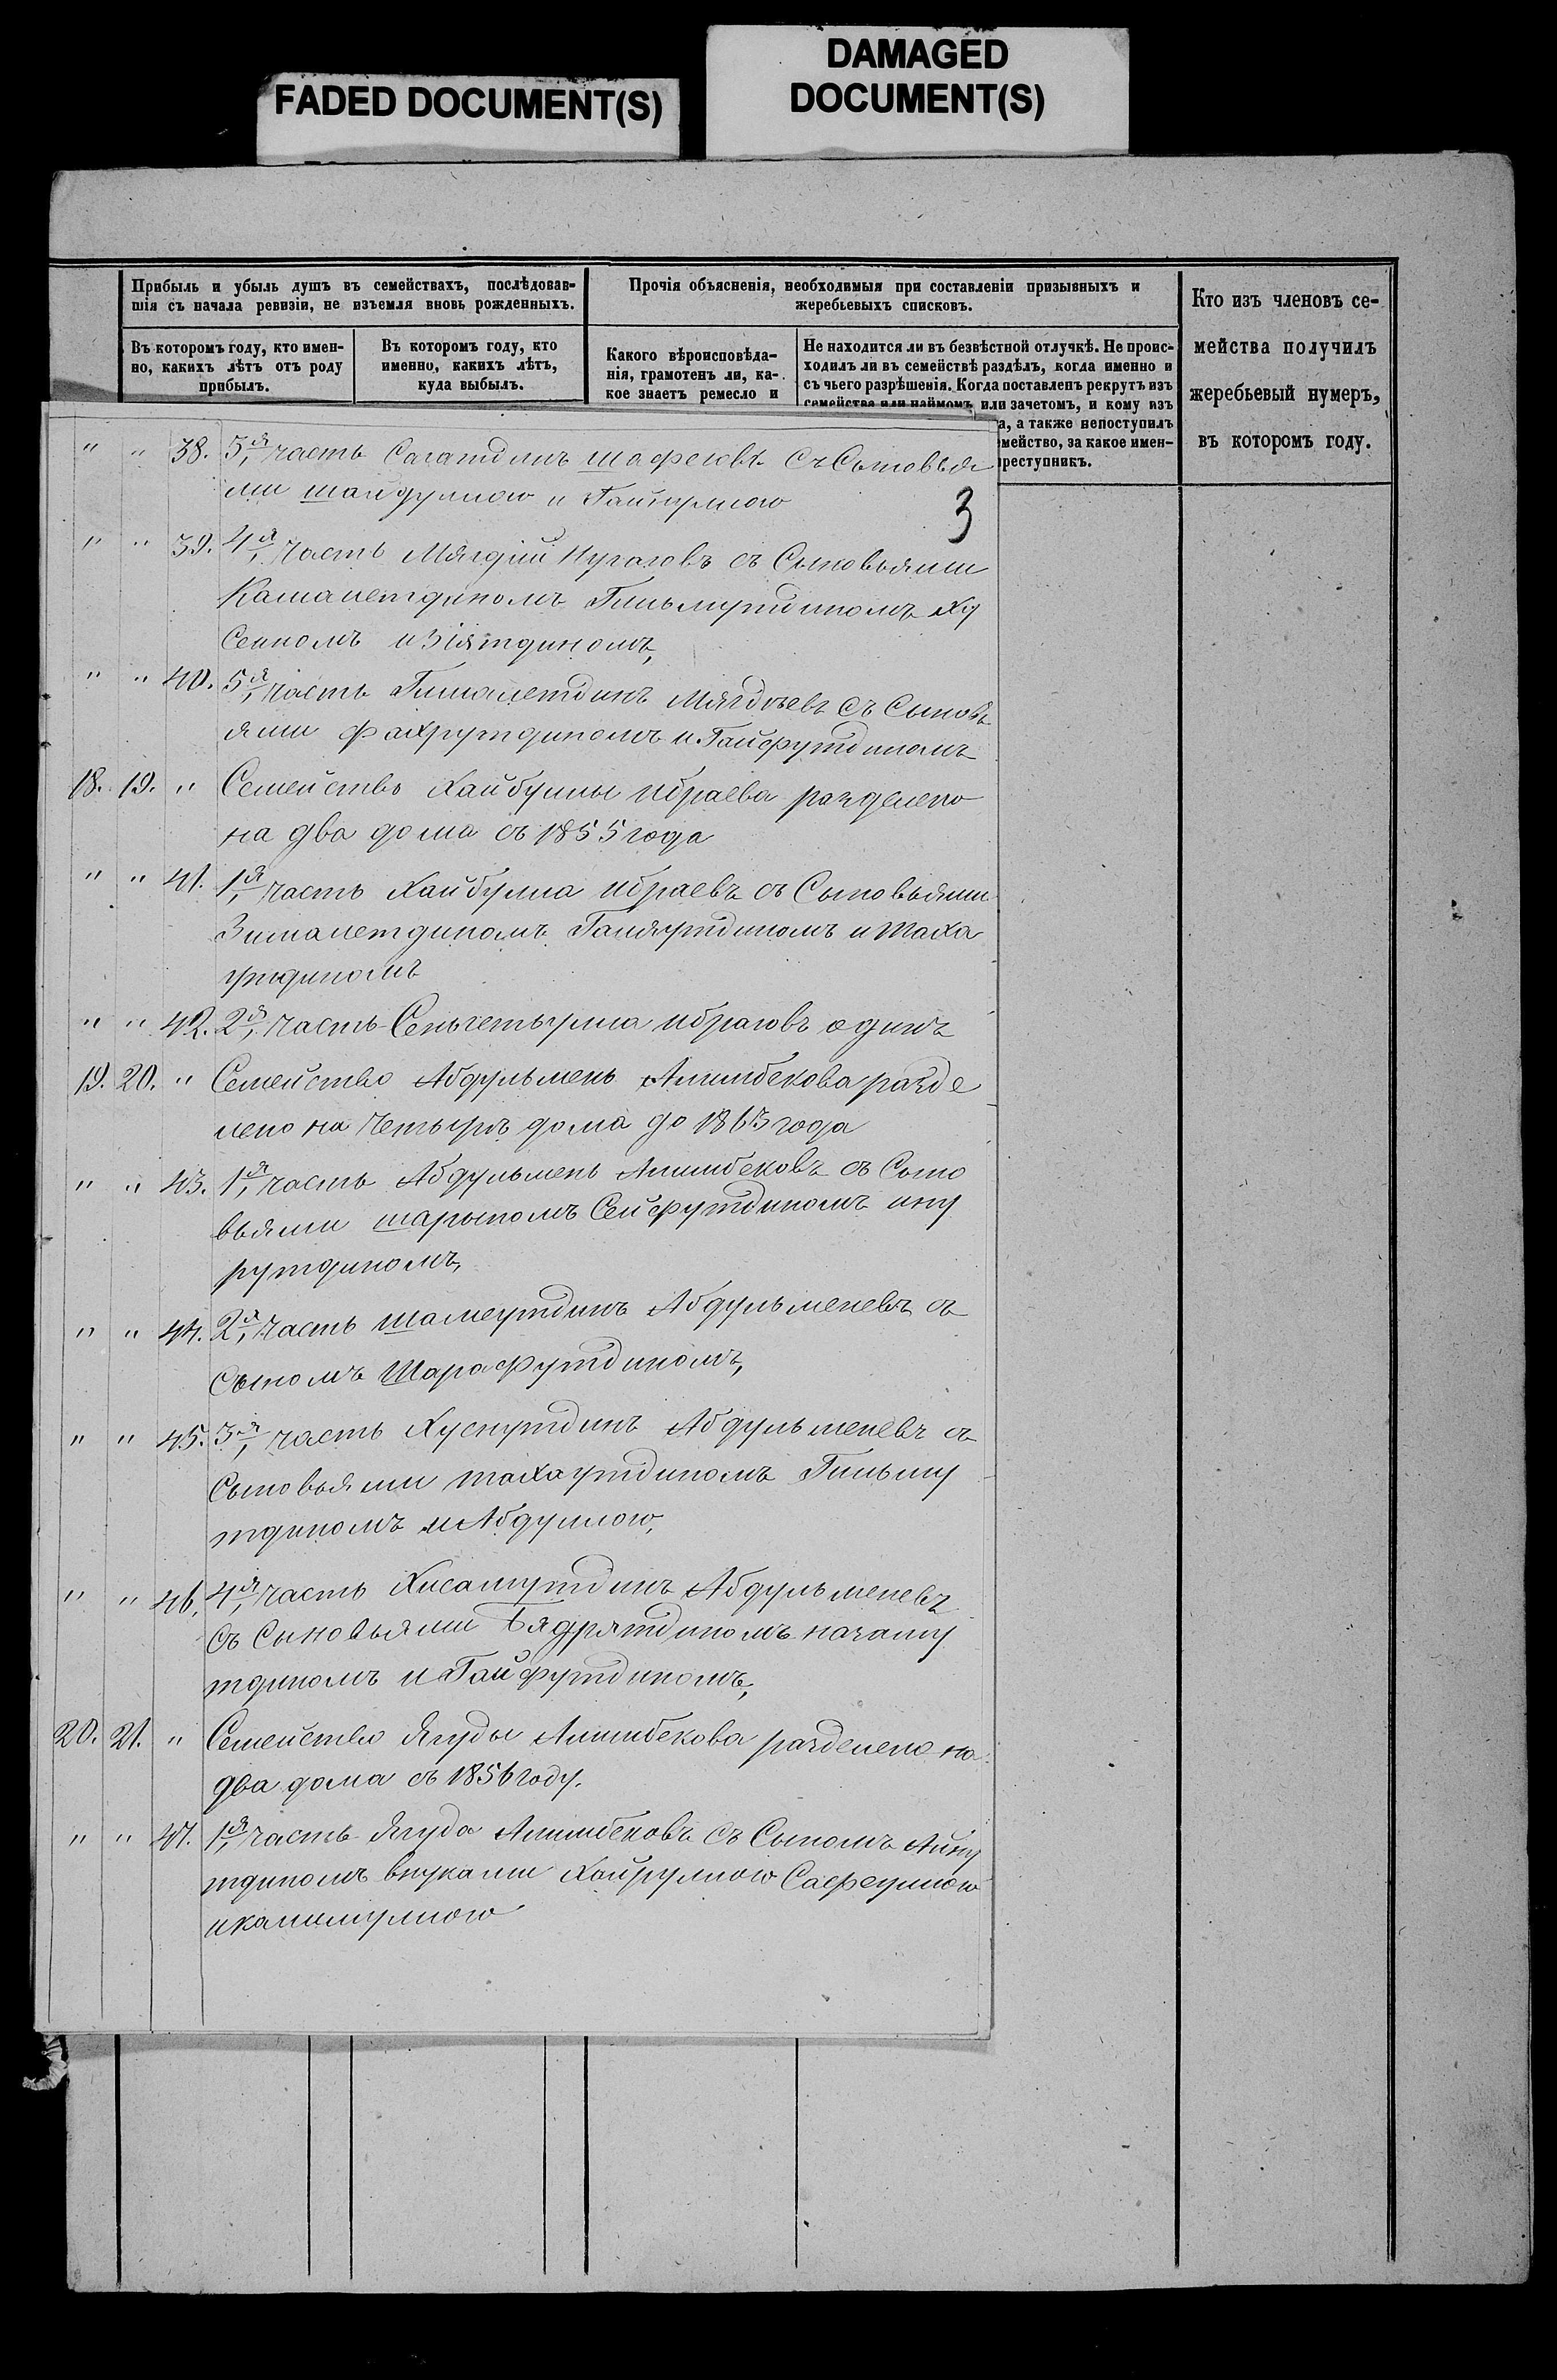 FADED DOCUMENT(S)
DAMAGED
DOCUMENT(S)
Прибыль и убыль душъ въ семействахъ, послѣдовав-
шія съ начала ревизіи, не изъемля вновь рожденныхъ.
Въ которомъ году, кто имен-
но, какихъ лѣтъ отъ роду
прибылъ.
Въ которомъ году, кто
именно, какихъ лѣтъ,
куда выбылъ.
Прочія объясненія, необходимыя при составленіи призывныхъ и
жеребьевыхъ списковъ.
Какого вѣроисповѣда-
нія, грамотенъ ли, ка-
кое знаетъ ремесло и
Не находится ли въ безвѣстной отлучкѣ. Не проис-
ходилъ ли въ семействѣ раздѣлъ, когда именно и
съ чьего разрѣшенія. Когда поставленъ рекрутъ изъ
семейства или наймомъ или зачетомъ, и кому изъ
а, а также непоступилъ
мейство, за какое имен-
реступникъ.
Кто изъ членовъ се-
мейства получилъ
жеребьевый нумеръ,
въ которомъ году.
3
" " 38. 5я часть Сагатдинъ шафеговъ съ Сыновья
ми шайдуллою и Гайнуллою
" " 39. 4я часть Мягдій Нугаговъ съ Сыновьями
Камалетдиномъ Гильмутдиномъ Ху
Сеиномъ и Зіятдиномъ,
" " 40. 5я часть Гималетдинъ Мягдѣевъ съ Сыновь
ями Фахрутдиномъ и Гайфутдиномъ
18. 19. " Семейство Хайбуллы ибраева разделено
на два дома съ 1855 года
" " 41. 1я часть Хайбулла ибраевъ съ Сыновьями
Зималетдиномъ Галяутдиномъ и Таха
утдиномъ
" " 42. 2я часть ибраговъ одинъ
19. 20. " Семейство Абдульмень Алимбекова разде
лено на Четырѣ дома до 1863 года
" " 43. 1я часть Абдульмень Алимбековъ съ Сыно
вьями шарыпомъ Сейфутдиномъ и ну
рутдиномъ,
" " 44. 2я часть шамеутдинъ Абдульменевъ съ
Сыномъ Шарафутдиномъ,
" " 45. 3я часть Хуснутдинъ Абдульменевъ съ
Сыновьями тахаутдиномъ Гильму
тдиномъ и Абдуллою,
" " 46. 4я часть Хисамутдинъ Абдульменевъ
съ Сыновьями Бядрятдиномъ низаму
тдиномъ и Гайфутдиномъ,
20. 21. " Семейство Ягуды Алимбекова разделено на
два дома съ 1856 году.
" " 47. 1я часть Ягуда Алимбековъ съ Сыномъ Айну
тдиномъ внуками Хайруллою Сафеуллою
и калимуллою